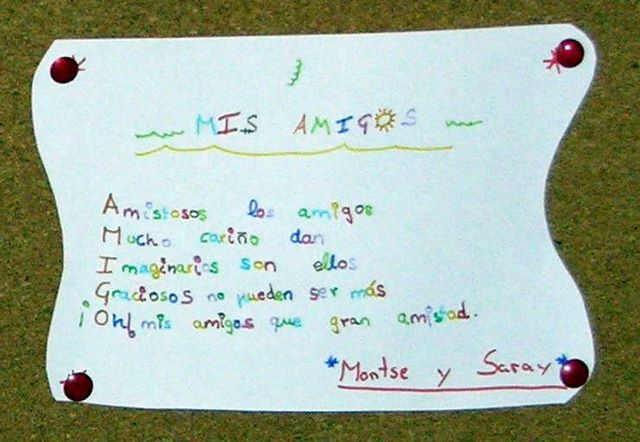 MIS AMIGOS
Amistosos los amigos
Mucho cariño dan
Imaginarios son ellos
Graciosos no pueden ser más
¡Oh! mis amigos que gran amistad.
*Montse y Saray*